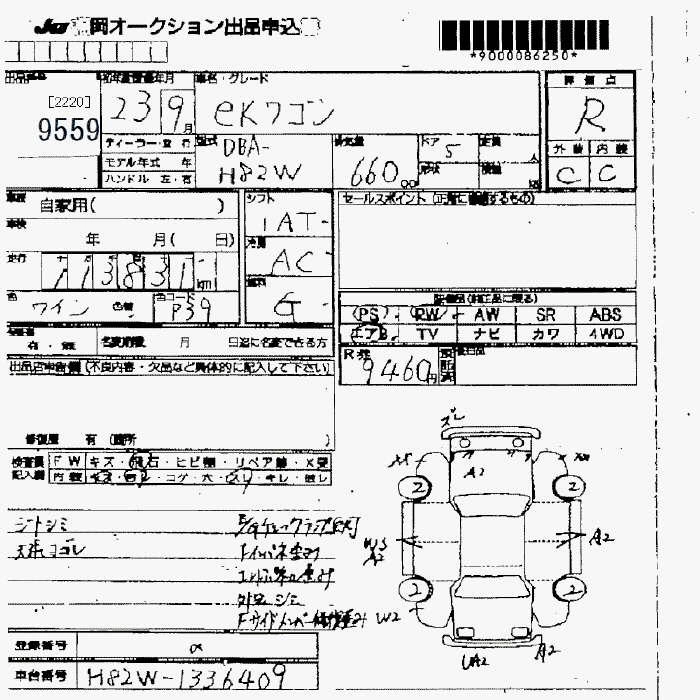 JU 岡オークション出品申込
*9000086250*
[2220]
9559
初年度登録年月
23 9月
車名・グレード
eKワゴン
評価点
R
外装 内装
C C
ディーラー・並行
モデル年式 年
ハンドル 左・右
型式
DBA-
H82W
排気量
660
ドア
5
形状
定員
人
積載
車歴
自家用( )
車検
年 月( 日)
走行
113831 km
シフト
1AT-
冷房
AC-
燃料
G-
色
ワイン 色替
色コード
P39
セールスポイント (正確に確認するもの)
装備品(純正品に限る)
PS PW AW SR ABS
エアB TV ナビ カワ 4WD
有・無 名変期限 月 日迄に名変できる方
R券
9460円
預託済
後日品
出品店申告欄 (不良内容・欠品など具体的に記入して下さい)
修復歴 有 (箇所 )
検査員 FW キズ・飛石・ヒビ割・リペア跡・X要
記入欄 内装 キズ・ヨゴレ・コゲ・穴・スレ・キレ・臭レ
シートシミ
天張ヨゴレ
Fインパネキズ
外品 シミ
Fサイドメンバー修復歴み W2
ズレ
A2
2 2
W3
A2
A2
2 2
UA2 A2
登録番号
車台番号 H82W-1336409